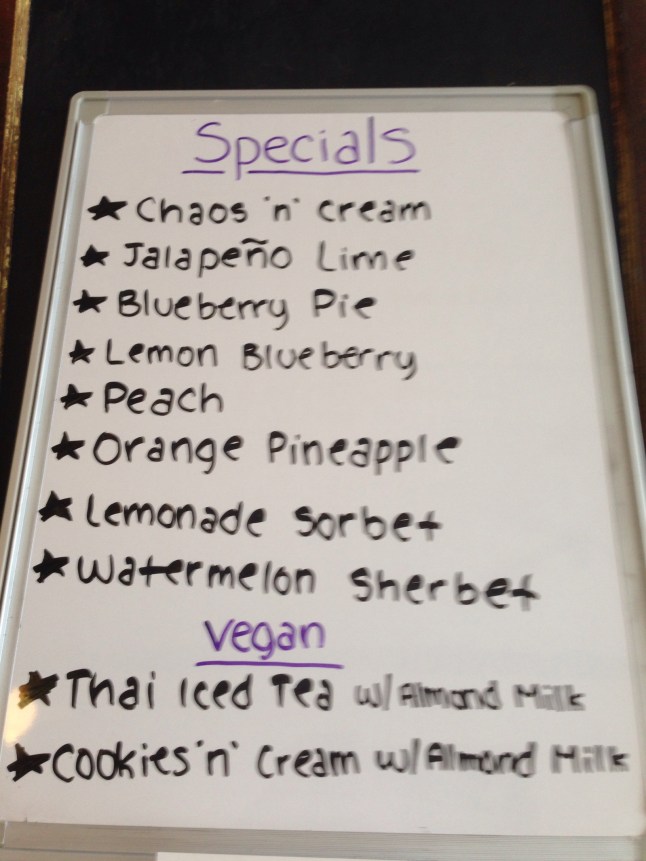 Specials
★ Chaos 'n' cream
★ Jalapeño Lime
★ Blueberry Pie
★ Lemon Blueberry
★ Peach
★ Orange Pineapple
★ Lemonade Sorbet
★ Watermelon Sherbet
Vegan
★ Thai Iced Tea w/ Almond Milk
★ Cookies 'n' Cream w/ Almond Milk